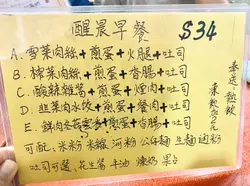 醒晨早餐 $34
A. 雪菜肉絲+煎蛋+火腿+吐司
B. 榨菜肉絲+煎蛋+香腸+吐司
C. 酸辣雜醬+煎蛋+煙肉+吐司
D. 韭菜肉水餃+煎蛋+餐肉+吐司
E. 鮮肉 +煎蛋+香腸+吐司
奉送:熱飲
凍飲加2元
可配: 米粉 米線 河粉 公仔麵 生麵 通粉
吐司可選 花生醬 牛油 煉奶 果占